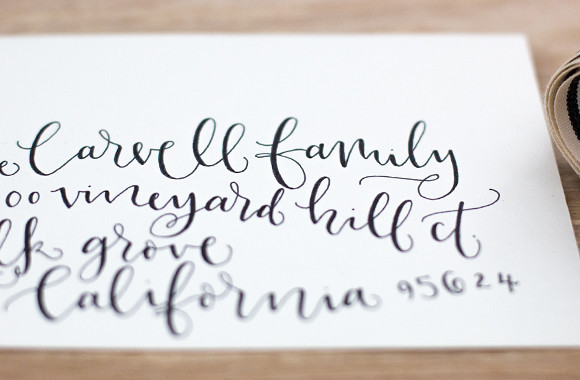 e Carvell family
00 vineyard hill ct.
lk grove
California 95624